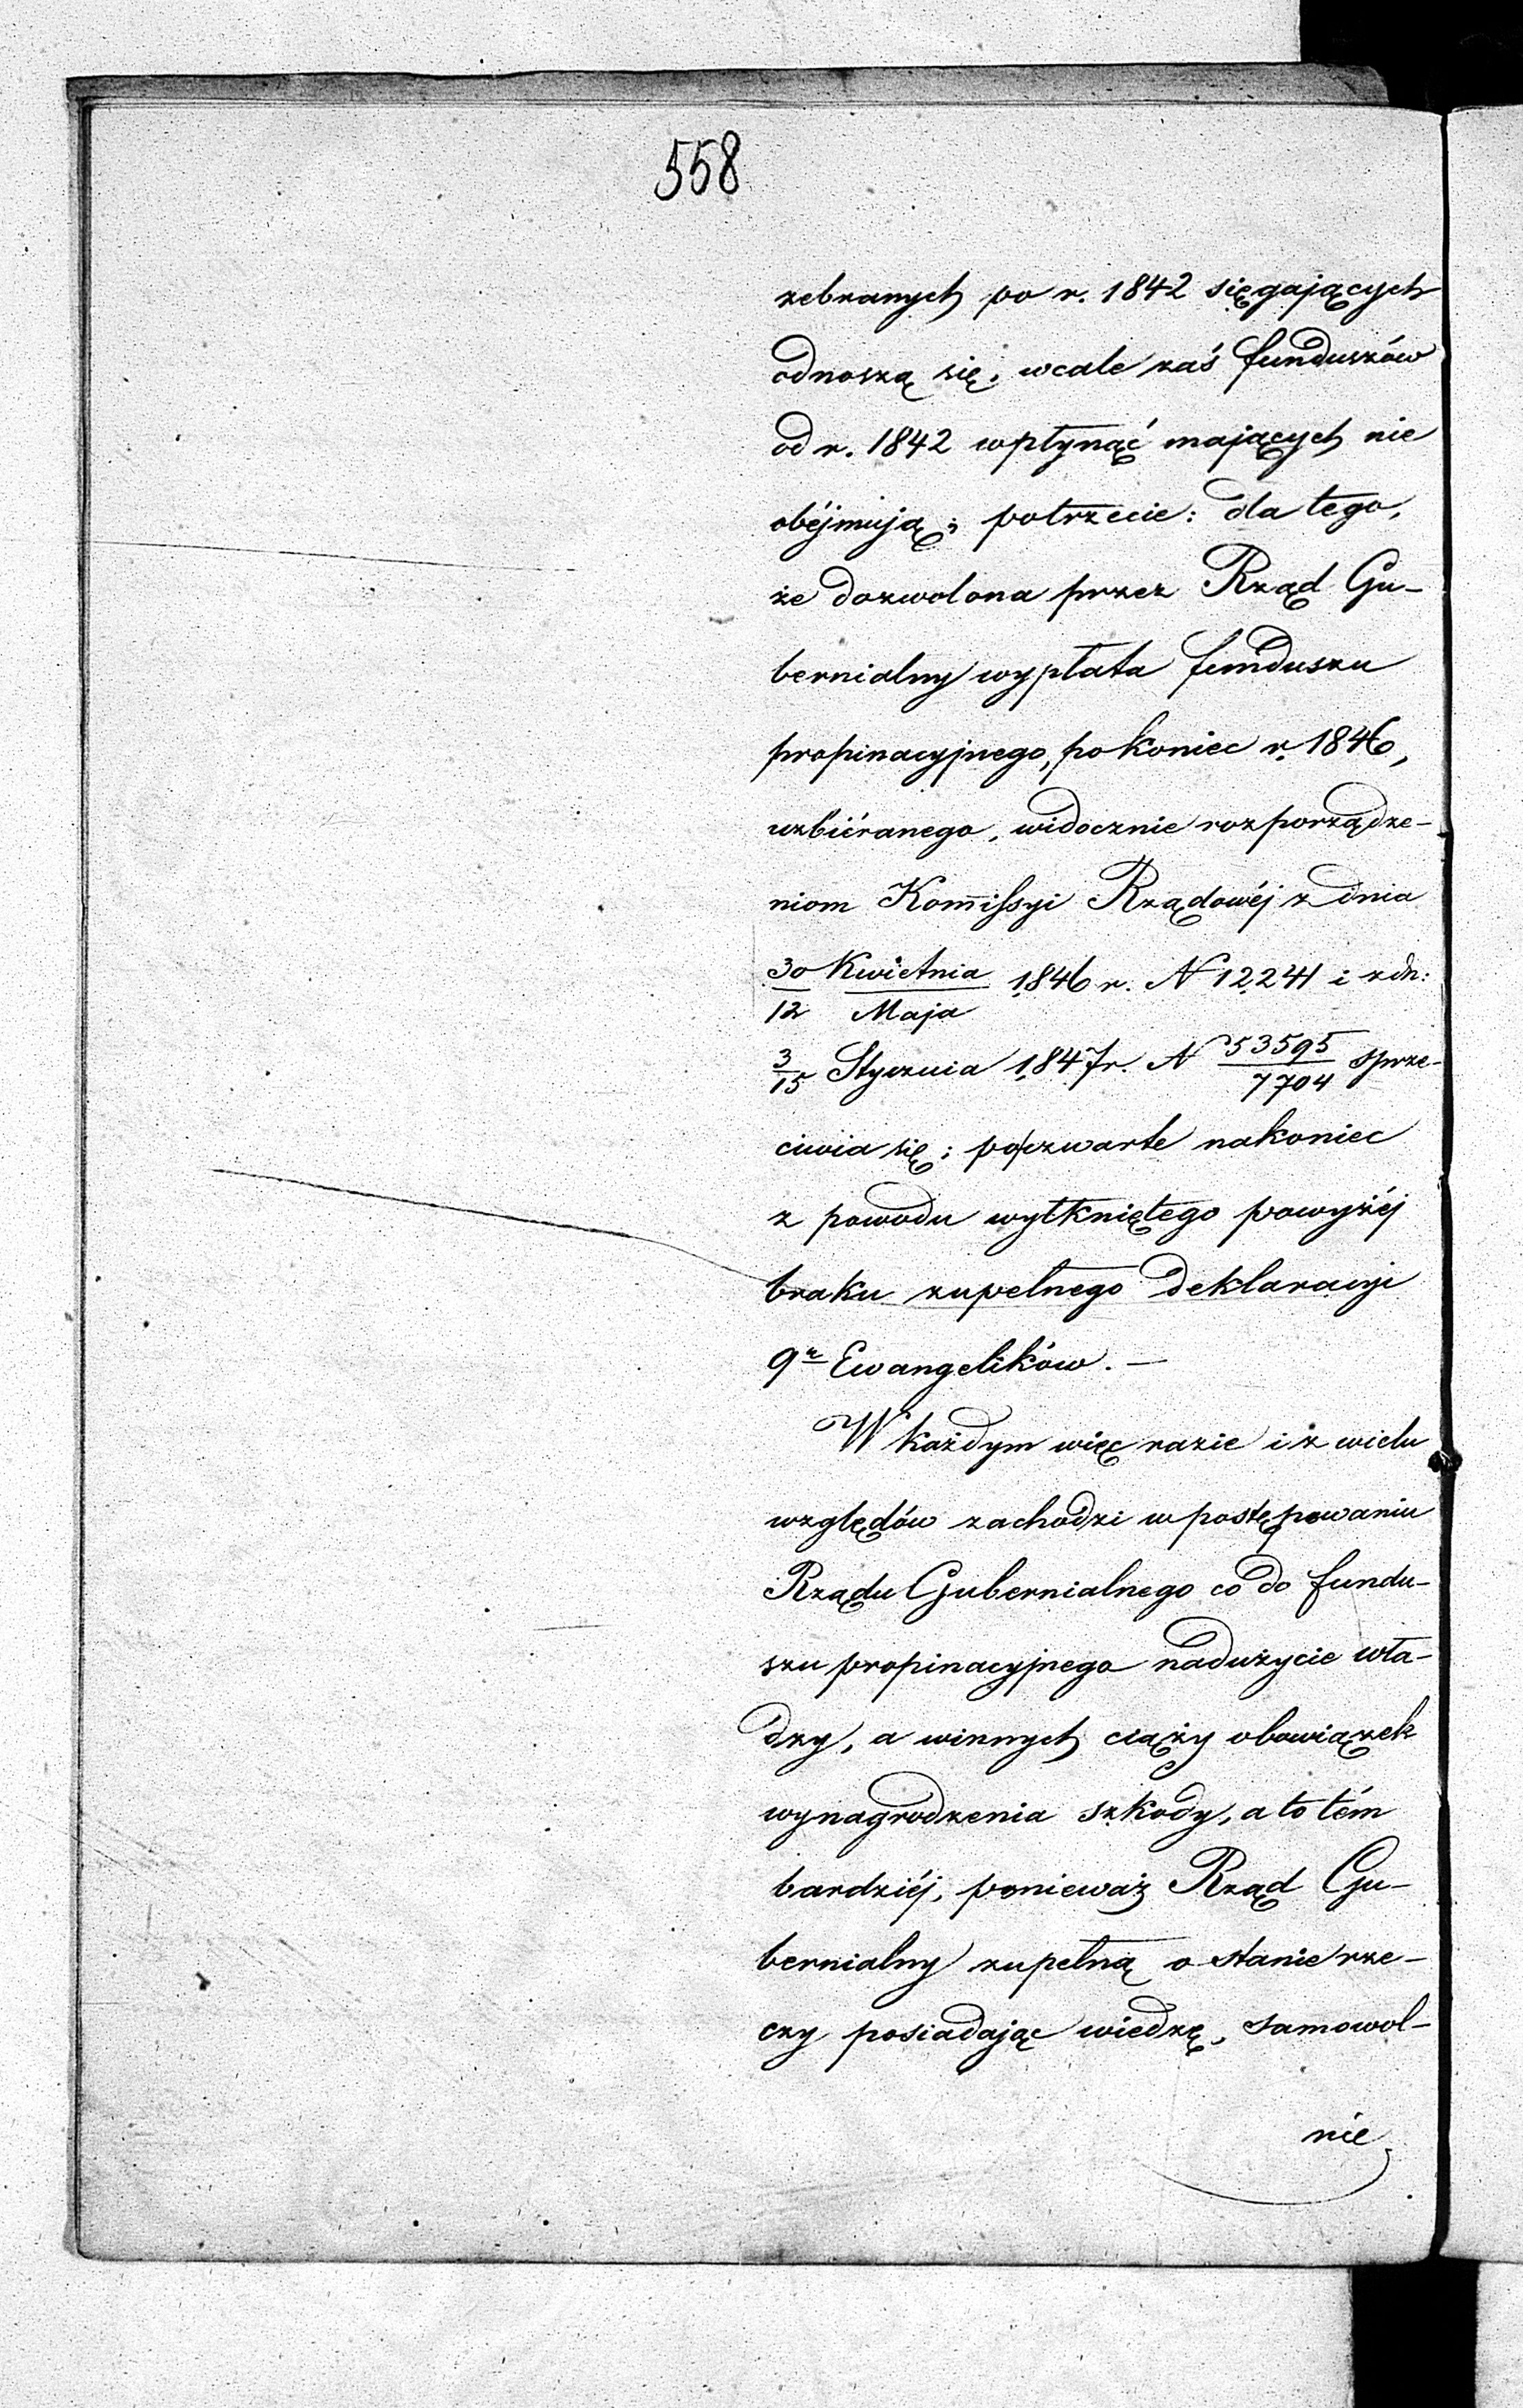 558
zebranych po r. 1842 sięgających
odnoszą się, wcale zaś funduszów
od r. 1842 wpłynąć mających nie
obéjmują; potrzecie: dla tego,
że dozwolona przez Rząd Gu-
bernialny wypłata funduszu
propinacyjnego, po koniec r. 1846,
uzbiéranego, widocznie rozporządze-
niom Kommissyi Rządowéj z dnia
30/12 Kwietnia/Maja 1846 r. N 12241 i z dn:
3/15 Stycznia 1847 r. N 53595/7704 sprze-
ciwia się; poczwarte nakoniec
z powodu wytkniętego powyżéj
braku zupełnego deklaracyi
9u Ewangelików. —
W każdym więc razie i z wielu
względów zachodzi w postępowaniu
Rządu Gubernialnego co do fundu-
szu propinacyjnego nadużycie wła-
dzy, a winnych ciąży obowiązek
wynagrodzenia szkody, a to tém
bardziéj, ponieważ Rząd Gu-
bernialny zupełną o stanie rze-
czy posiadając wiedzę, samowol-
nie